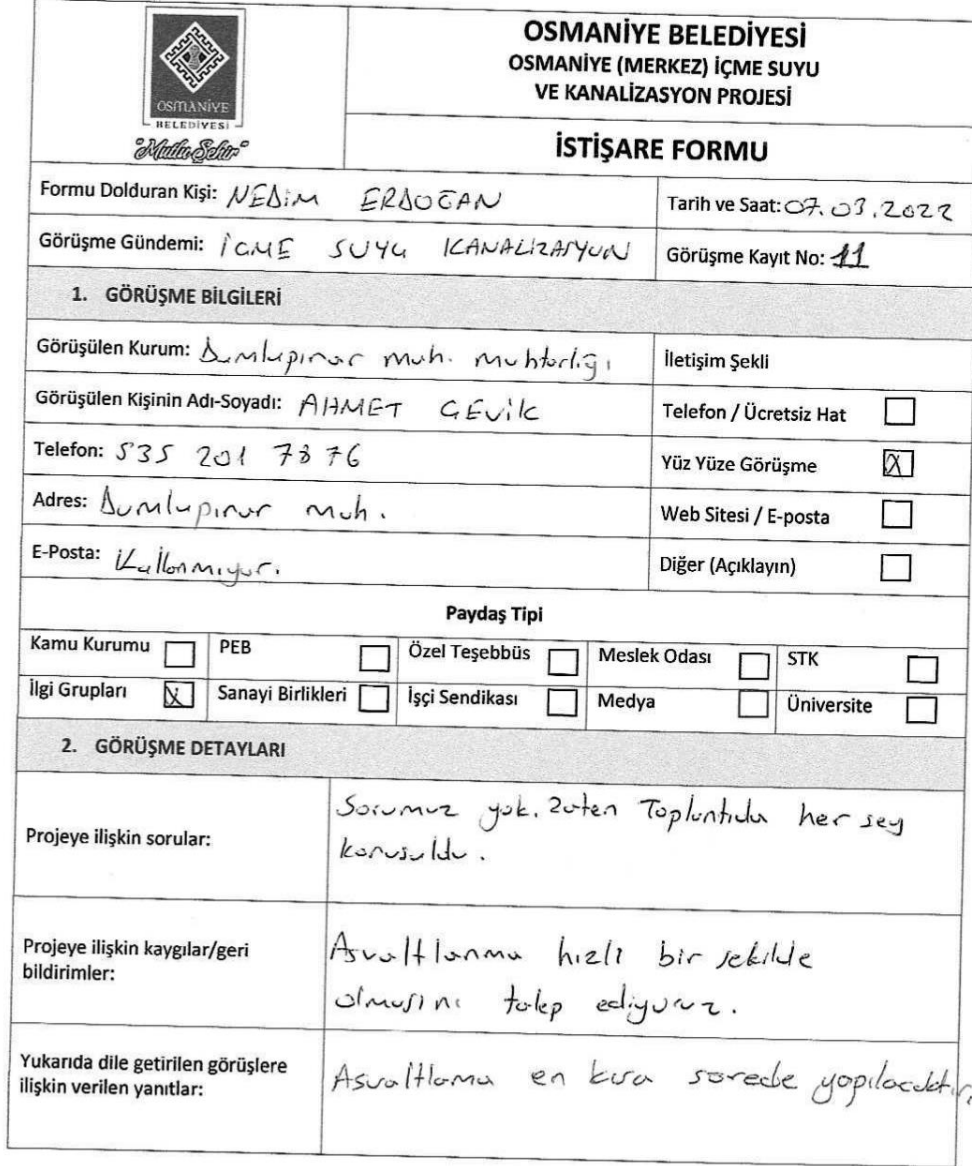 OSMANİYE
BELEDİYESİ
"Mutlu Şehir"
OSMANİYE BELEDİYESİ
OSMANİYE (MERKEZ) İÇME SUYU
VE KANALİZASYON PROJESİ
İSTİŞARE FORMU
Formu Dolduran Kişi: NEDİM ERDOĞAN
Tarih ve Saat: 07.03.2022
Görüşme Gündemi: İÇME SUYU KANALİZASYON
Görüşme Kayıt No: 11
1. GÖRÜŞME BİLGİLERİ
Görüşülen Kurum: Dumlupınar mah. muhtarlığı
İletişim Şekli
Görüşülen Kişinin Adı-Soyadı: AHMET GEVİK
Telefon / Ücretsiz Hat
Telefon: 535 201 7876
Yüz Yüze Görüşme X
Adres: Dumlupınar mah.
Web Sitesi / E-posta
E-Posta: Kullanmıyor.
Diğer (Açıklayın)
Paydaş Tipi
Kamu Kurumu PEB Özel Teşebbüs Meslek Odası STK
İlgi Grupları X Sanayi Birlikleri İşçi Sendikası Medya Üniversite
2. GÖRÜŞME DETAYLARI
Projeye ilişkin sorular:
Sorumuz yok. Zaten Toplantıda her sey
konusuldu.
Projeye ilişkin kaygılar/geri
bildirimler:
Asvaltlanma hızlı bir sekilde
olmasını talep ediyoruz.
Yukarıda dile getirilen görüşlere
ilişkin verilen yanıtlar:
Asvaltlama en kısa sürede yapılacaktır.